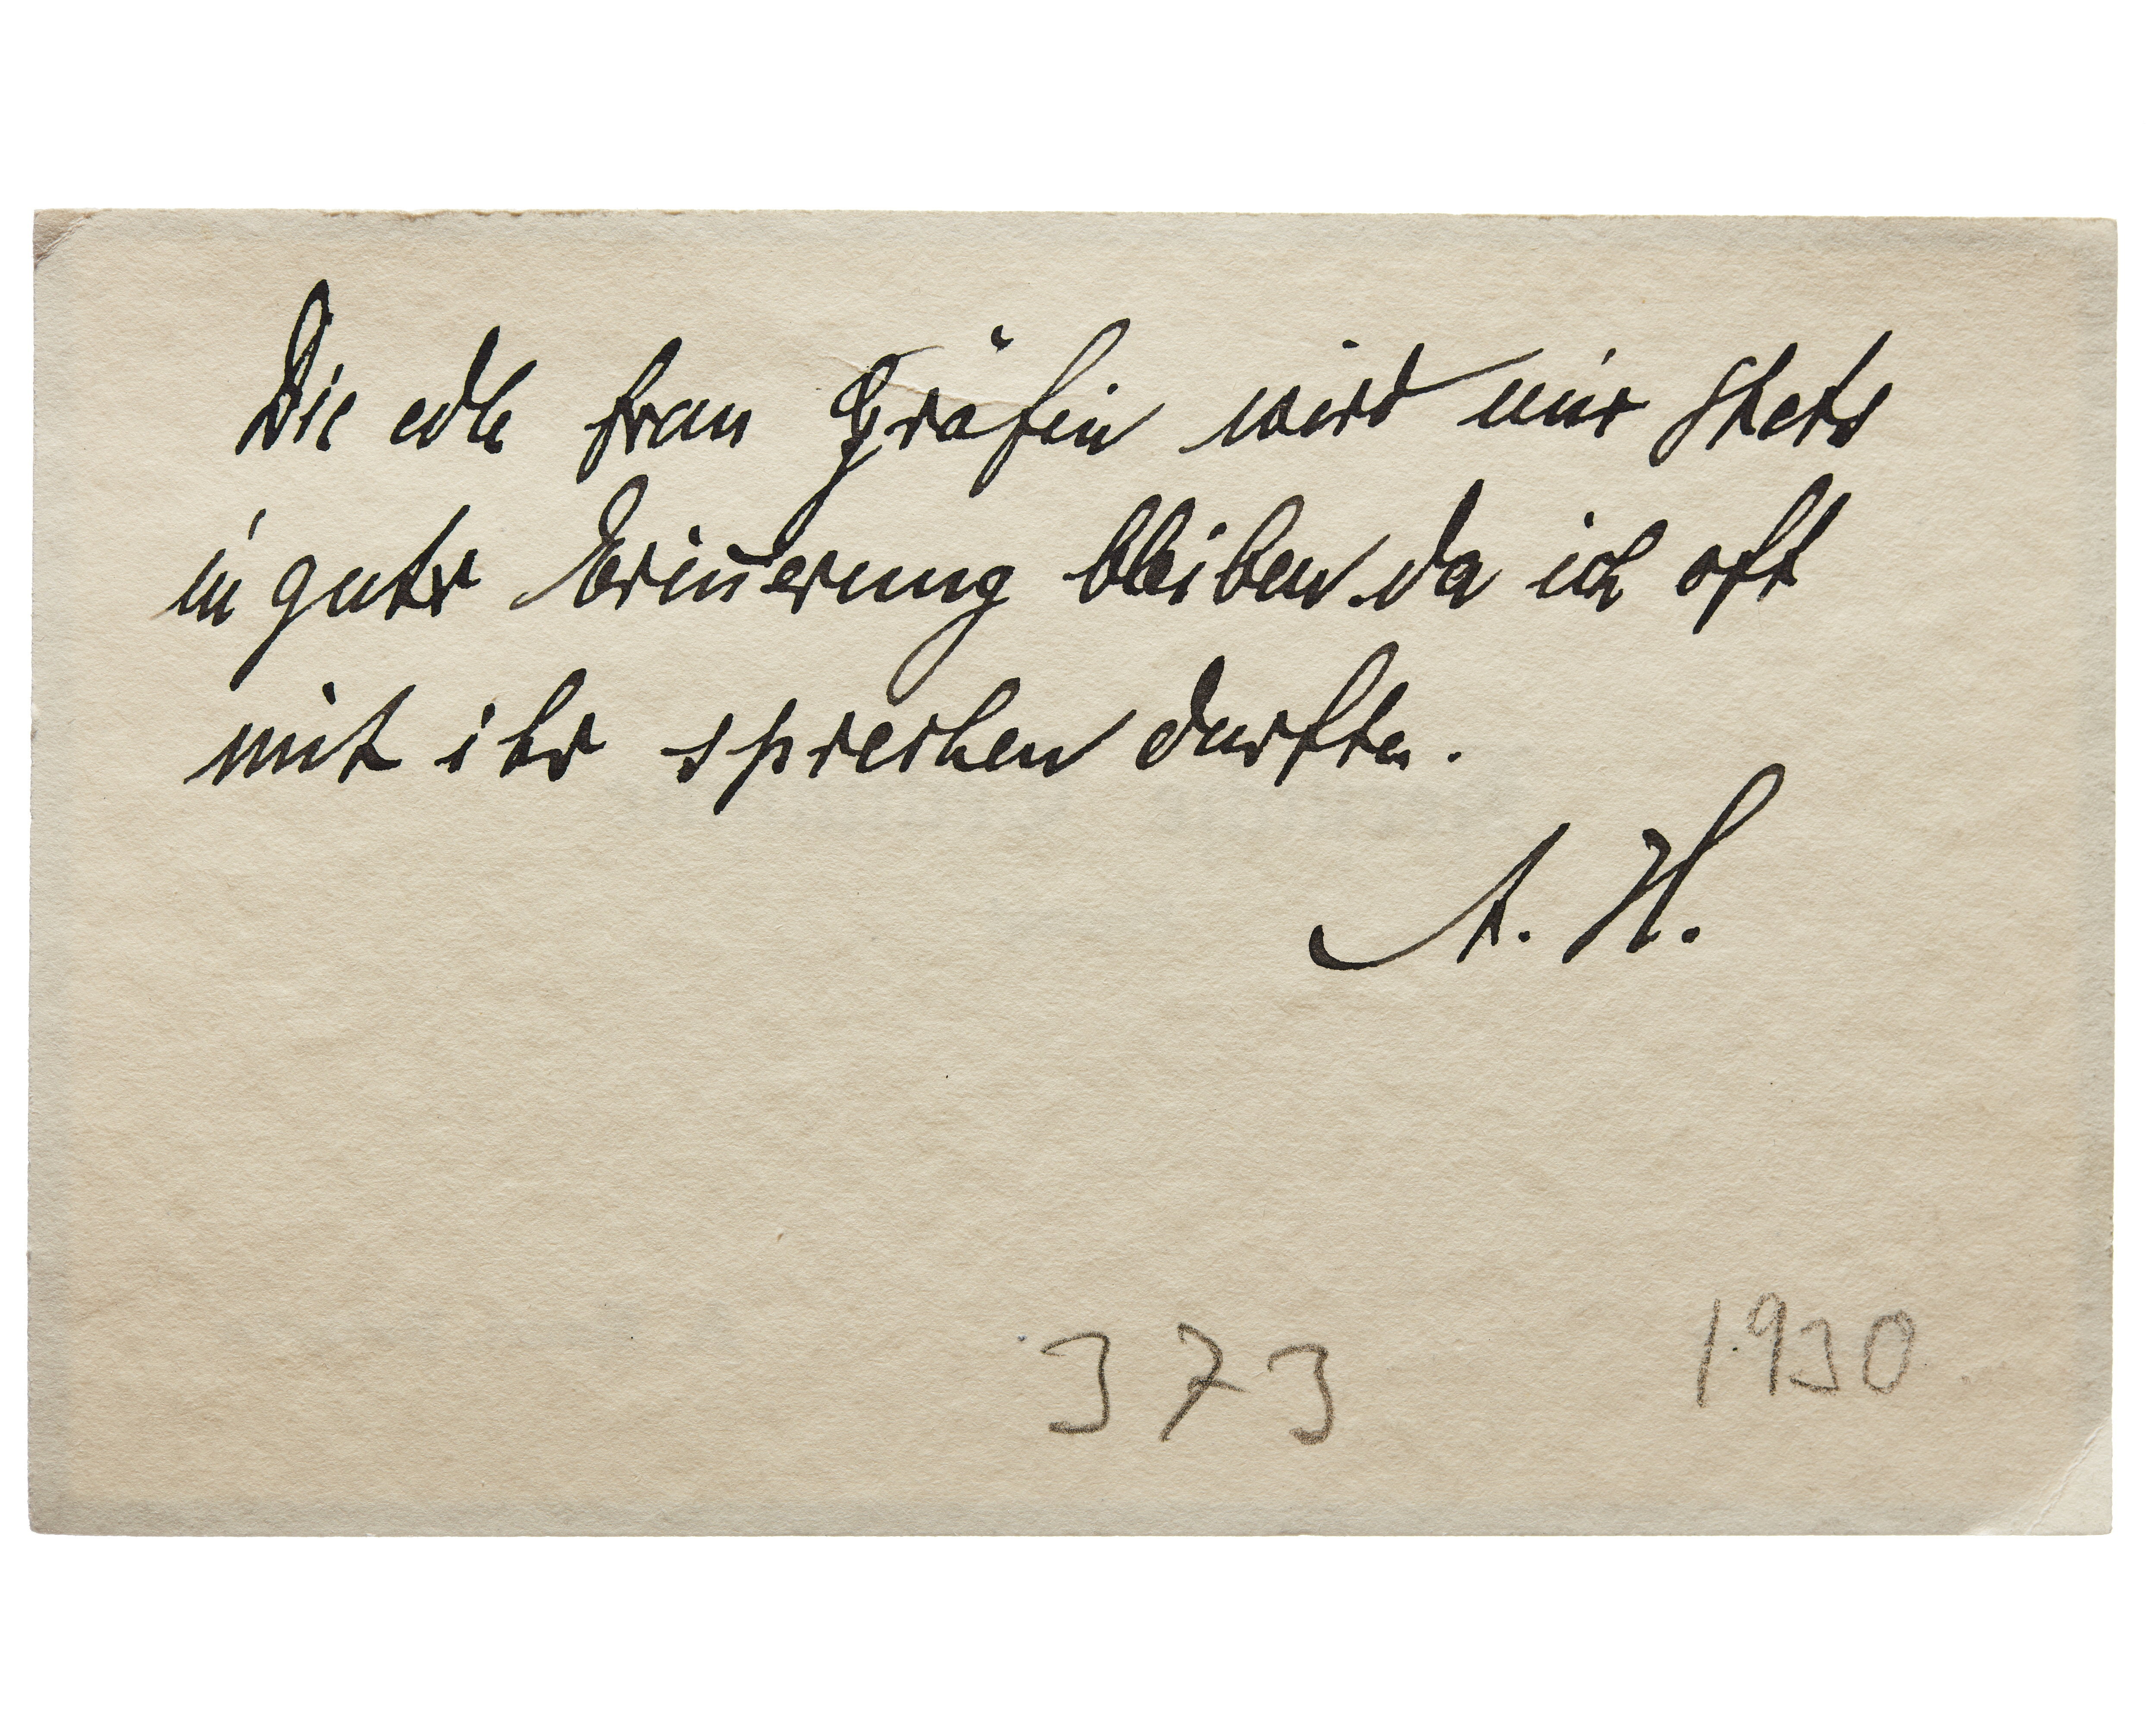 Die edle Frau Gräfin wird mir stets
in guter Erin̄erung bleiben. da ich oft
mit ihr sprechen durfte.
A. H.
373
1930.